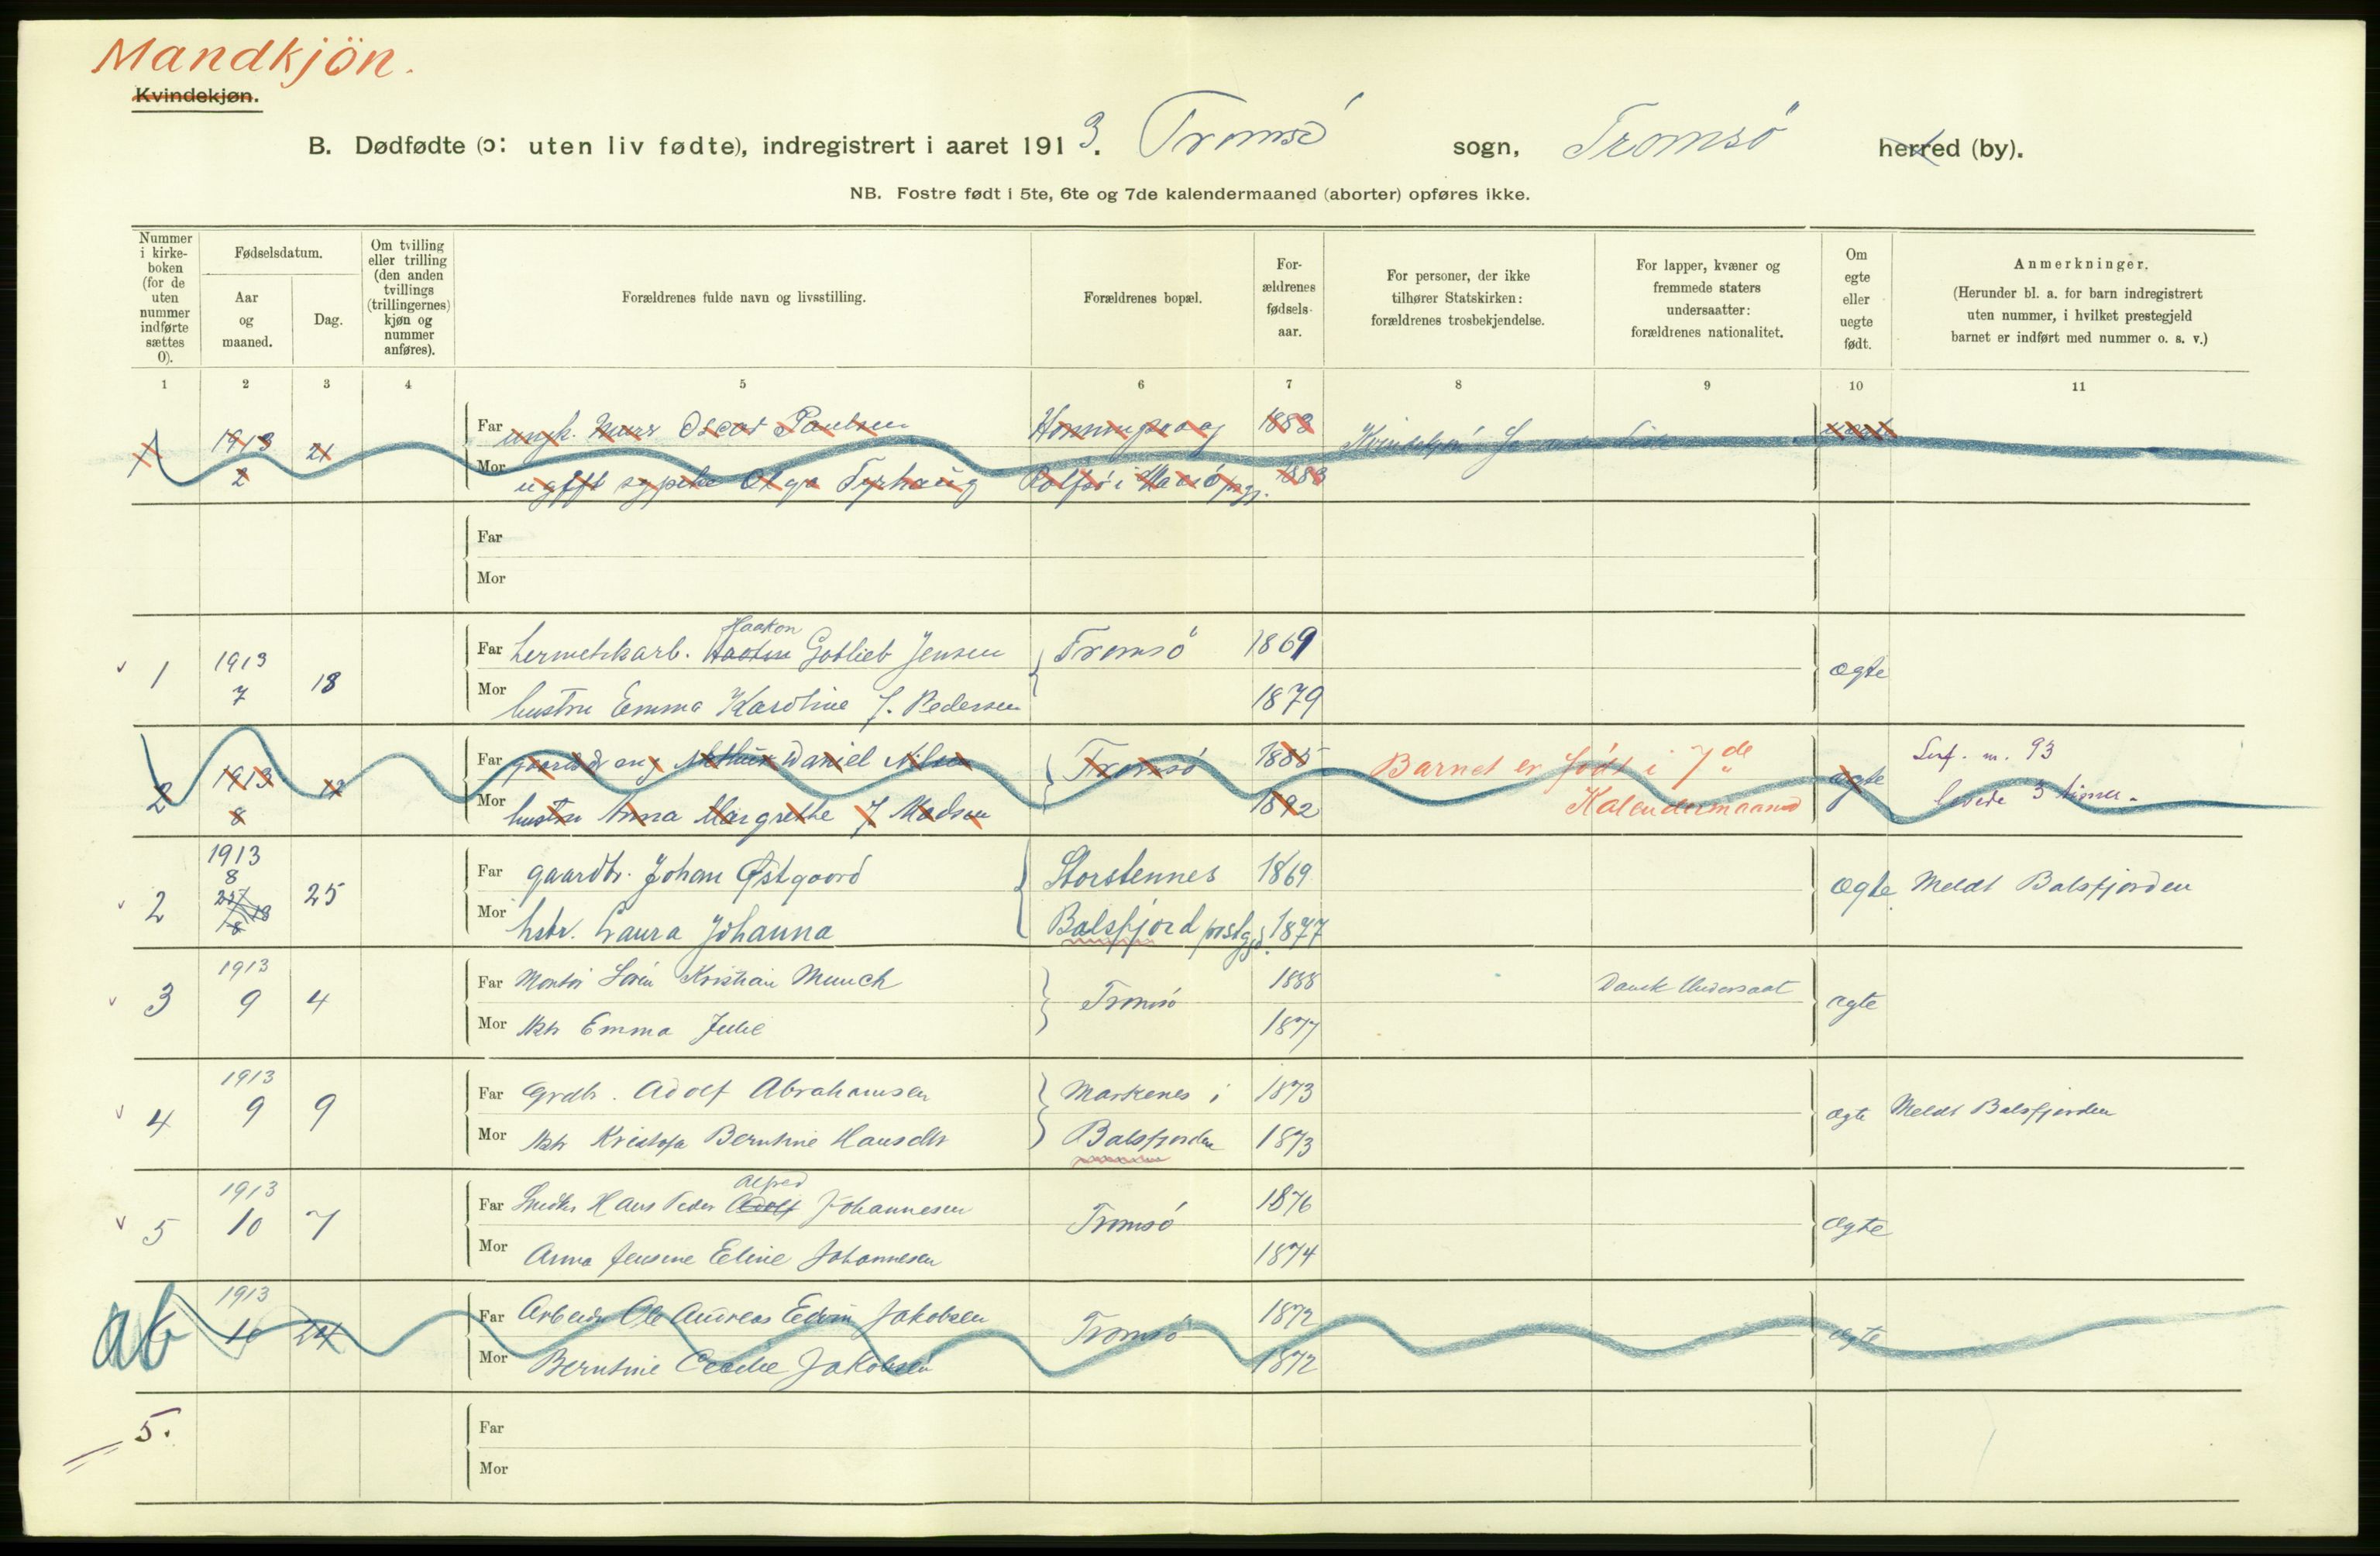 Mandkjön.
Kvindekjøn.
B. Dødfødte (ɔ: uten liv fødte), indregistrert i aaret 1913. Tromsö sogn, Tromsö herred (by).
NB. Fostre født i 5te, 6te og 7de kalendermaaned (aborter) opføres ikke.
Nummer i kirke-boken (for de uten nummer indførte sættes 0).
Fødselsdatum.
Aar og maaned.
Dag.
Om tvilling eller trilling (den anden tvillings (trillingernes) kjøn og nummer anføres).
Forældrenes fulde navn og livsstilling.
Forældrenes bopæl.
For-ældrenes fødsels-aar.
For personer, der ikke tilhører Statskirken: forældrenes trosbekjendelse.
For lapper, kvæner og fremmede staters undersaatter: forældrenes nationalitet.
Om egte eller uegte født.
Anmerkninger.
(Herunder bl. a. for barn indregistrert uten nummer, i hvilket prestegjeld barnet er indført med nummer o. s. v.)
1 2 3 4 5 6 7 8 9 10 11
1 1913 2 21 Far ungk. Oscar Paulsen Honningsvaag 1883
Mor ugift sypike Olga Tyrhaug Rolfsö i Maasö prgj. 1883
Far
Mor
1 1913 7 18 Far hermetikarb. Haakon Gotlieb Jensen Tromsö 1869 ægte
Mor hustru Emma Karoline f. Pedersen 1879
2 1913 8 Far Arthur Daniel Nilsen Tromsö 1885 Barnet er født i 7de Kalendermaaned ægte m. 93
Mor hustru Anna Margrethe f Madsen 1892 levede 3 timer.
2 1913 8 25 Far gaardbr. Johan Østgaard Storstennes 1869 Ægte Meldt Balsfjorden
Mor hstr. Laura Johanna Balsfjord prstgjd. 1877
3 1913 9 4 Far Montör Sören Kristian Munch Tromsö 1888 Dansk Undersaat ægte
Mor Hstr Emma Julie 1877
4 1913 9 9 Far Grdbr. Adolf Abrahamsen Markenes i 1873 ægte Meldt Balsfjorden
Mor Hstr Kristofa Berntine Hansdtr Balsfjorden 1873
5 1913 10 7 Far Hans Peder Adolf Alfred Johannesen Tromsö 1876 Ægte
Mor Anna Jensine Eline Johannesen 1874
ab 6 1913 10 24 Far Arbeider Ole Andreas Edvin Jakobsen Tromsö 1872 ægte
Mor Berntine Cecilie Jakobsen 1872
5.
Far
Mor